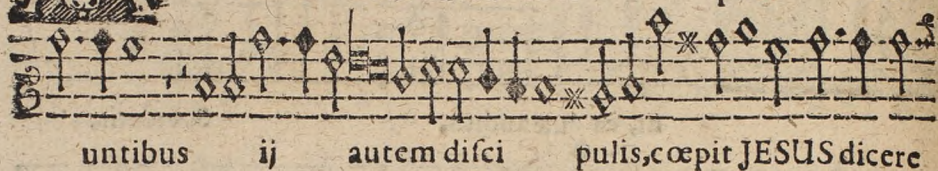 untibus ij autem diſci pulis, cœpit JESUS dicere